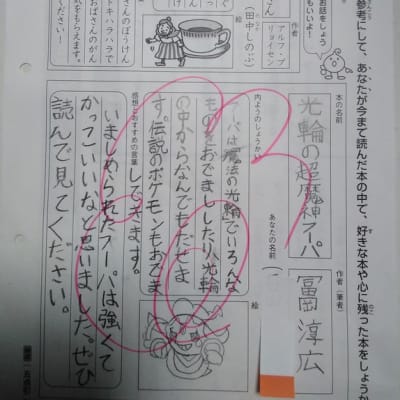 参考にして、あなたが今まで読んだ本の中で、好きな本や心に残った本をしょうか
お話をしょう
もいいよ!
さん
アルフ・プ
リョイセン
絵
(田中しのぶ)
さんのぼうけん
気をもらえます。
おばさんのがん
ドキハラハラで
ください!
本の名前
光輪の超魔神フーパ
作者(筆者)
冨岡淳広
あなたの名前(
内ようのしょうかい
フーパは魔法の光輪でいろんな
ものをおでましししたり、光輪
の中からなんでもだせま
す。伝説のポケモンもおでま
ししてきます。
絵
感想とおすすめの言葉
いましめられたフーパは強くて
かっこいいなと思いました。ぜひ
読んで見てください。